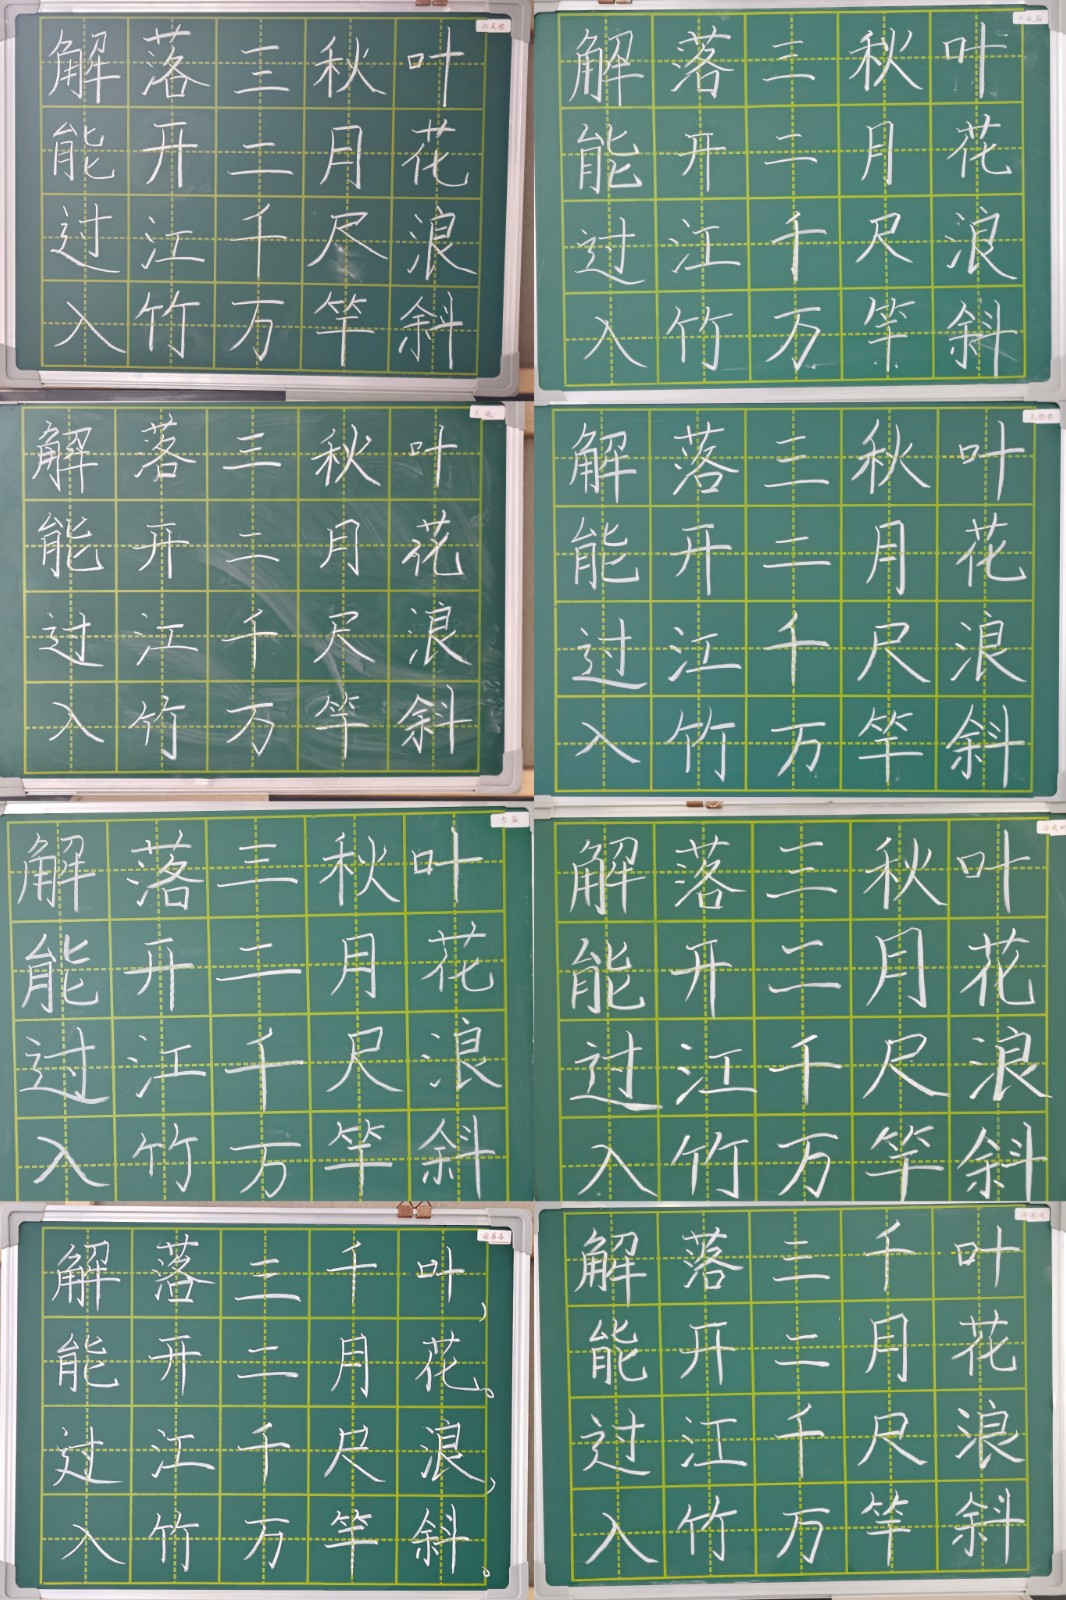 解落三秋叶
能开二月花
过江千尺浪
入竹万竿斜
解落三秋叶
能开二月花
过江千尺浪
入竹万竿斜
解落三秋叶
能开二月花
过江千尺浪
入竹万竿斜
解落三秋叶
能开二月花
过江千尺浪
入竹万竿斜
解落三秋叶
能开二月花
过江千尺浪
入竹万竿斜
解落三秋叶
能开二月花
过江千尺浪
入竹万竿斜
解落三千叶,
能开二月花。
过江千尺浪,
入竹万竿斜。
解落三千叶
能开二月花
过江千尺浪
入竹万竿斜